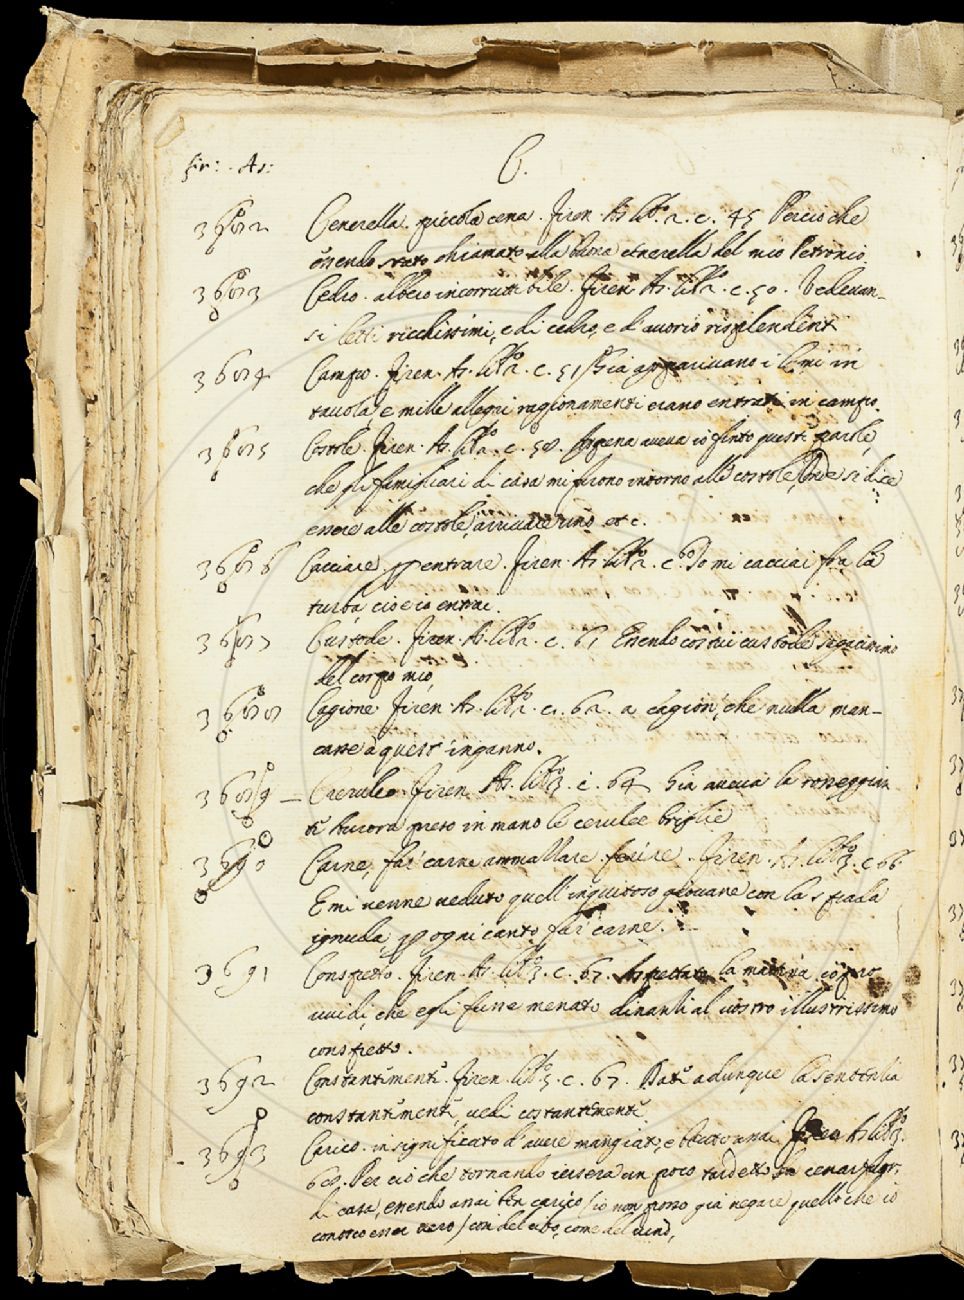 Fir: As:
C.
3682 Cenerella. piccola cena. Firen. As. lib. 2. c. 45 Percioche
essendo stato chiamato alla buona cenerella del mio Petronio.
3683 Cedro. albero incorruttibile. Firen. As. lib. 2. c. 50. Vedevan-
si letti ricchissimi, e di cedro, e d'avorio risplendenti
3684 Campo. Firen. As. lib. 2. c. 51 Già apparivano i lumi in
tavola, e mille allegri ragionamenti erano entrati in campo.
3685 Costole. Firen. As. lib. 2. c. 58. Appena aveva io finito queste parole,
che gli famigliari di casa mi furono intorno alle costole, onde si dice
essere alle costole, arrivare uno etc.
3686 Cacciare, p entrare. Firen. As. lib. 2. c. 60 Io mi cacciai fra la
turba, cioè io entrai.
3687 Custode. Firen. As. lib. 2. c. 61 Essendo costui custode sagacissimo
del corpo mio,
3688 Cagione Firen. As. lib. 2. c. 62. a cagion, che nulla man-
casse a quest'inganno.
3689 – Ceruleo. Firen. As. lib. 3. c. 64 Già aveva la rosseggian
te Aurora preso in mano le cerulee briglie
3690 Carne, far carne ammazzare ferire. Firen. As. lib. 3. c 66
E mi venne veduto quell'inquitoso giovane con la spada
ignuda, p ogni canto far carne.
3691 Conspetto. Firen. As. lib. 3. c. 67. Aspettato la mattina io pro
uuidi, che egli fusse menato dinanzi al vostro illustrissimo
conspetto.
3692 Constantemente. Firen. lib. 3. c. 67. Data adunque la sentenzia
constantemente, vedi costantemente
3693 Carico. in significato d'avere mangiato, e bevuto assai Firen As. lib. 3.
68. Per cio che tornando iersera un poco tardetto da cenar fuor
di casa, essendo assai ben carico (io non posso già negare quello che io
conosco esser vero) con del cibo, come del vino,